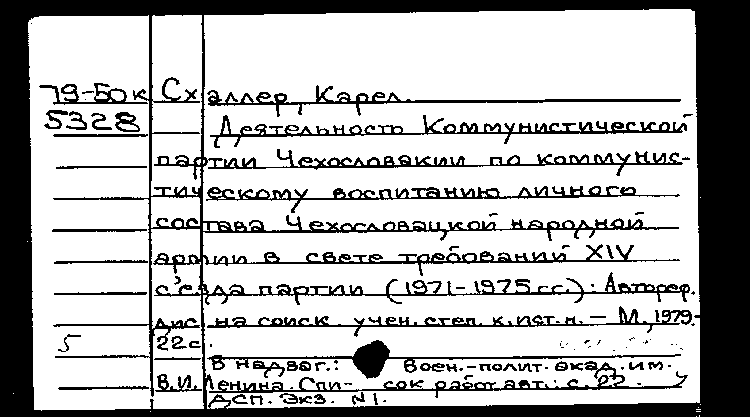 79-50к Схаллер, Карел.
5328 Деятельность Коммунистической
партии Чехословакии по коммунис-
тическому воспитанию личного
состава Чехословацкой народной
армии в свете требований XIV
с'езда партии (1971-1975 гг.): Автореф.
дис. на соиск. учен. степ. к.ист.н. — М., 1979.-
5 22с.
В надзаг.: Воен.-полит. акад. им.
В.И.Ленина. Спи- сок работ авт.: с.22.
ДСП. Экз. №1.